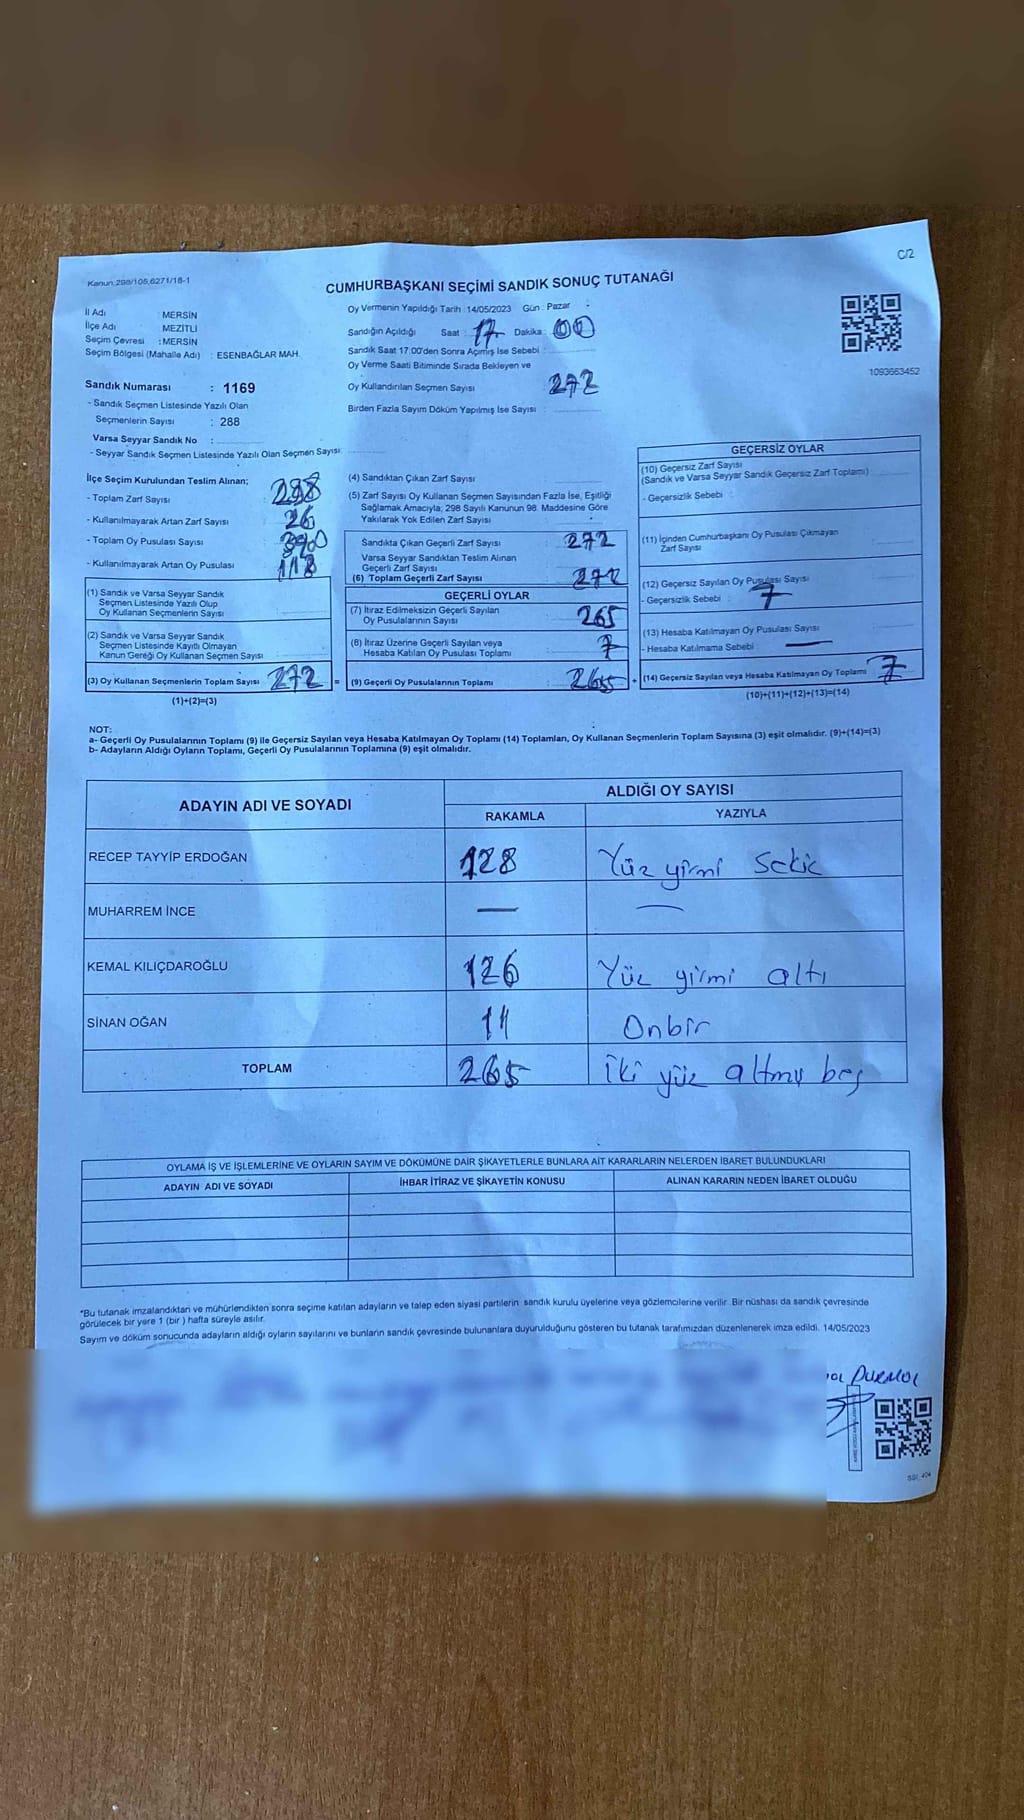 C/2
Kanun 298/105,6271/18-1
CUMHURBAŞKANI SEÇİMİ SANDIK SONUÇ TUTANAĞI
İl Adı MERSİN
İlçe Adı MEZİTLİ
Seçim Çevresi : MERSİN
Seçim Bölgesi (Mahalle Adı) : ESENBAĞLAR MAH.
Sandık Numarası : 1169
- Sandık Seçmen Listesinde Yazılı Olan
Seçmenlerin Sayısı : 288
Varsa Seyyar Sandık No :
- Seyyar Sandık Seçmen Listesinde Yazılı Olan Seçmen Sayısı:
Oy Vermenin Yapıldığı Tarih : 14/05/2023 Gün : Pazar :
Sandığın Açıldığı Saat : 17 Dakika : 00
Sandık Saat 17:00'den Sonra Açımış İse Sebebi :
Oy Verme Saati Bitiminde Sırada Bekleyen ve
Oy Kullandırılan Seçmen Sayısı 272
Birden Fazla Sayım Döküm Yapılmış İse Sayısı :
1093663452
İlçe Seçim Kurulundan Teslim Alınan;
- Toplam Zarf Sayısı 298
- Kullanılmayarak Artan Zarf Sayısı 26
- Toplam Oy Pusulası Sayısı
- Kullanılmayarak Artan Oy Pusulası 118
(1) Sandık ve Varsa Seyyar Sandık
Seçmen Listesinde Yazılı Olup
Oy Kullanan Seçmenlerin Sayısı
(2) Sandık ve Varsa Seyyar Sandık
Seçmen Listesinde Kayıtlı Olmayan
Kanun Gereği Oy Kullanan Seçmen Sayısı
(3) Oy Kullanan Seçmenlerin Toplam Sayısı 272 =
(1)+(2)=(3)
(4) Sandıktan Çıkan Zarf Sayısı :
(5) Zarf Sayısı Oy Kullanan Seçmen Sayısından Fazla İse, Eşitliği
Sağlamak Amacıyla; 298 Sayılı Kanunun 98. Maddesine Göre
Yakılarak Yok Edilen Zarf Sayısı
Sandıkta Çıkan Geçerli Zarf Sayısı : 272
Varsa Seyyar Sandıktan Teslim Alınan
Geçerli Zarf Sayısı
(6) Toplam Geçerli Zarf Sayısı 272
GEÇERLİ OYLAR
(7) İtiraz Edilmeksizin Geçerli Sayılan
Oy Pusulalarının Sayısı 265
(8) İtiraz Üzerine Geçerli Sayılan veya
Hesaba Katılan Oy Pusulası Toplamı 7
(9) Geçerli Oy Pusulalarının Toplamı 265 +
GEÇERSİZ OYLAR
(10) Geçersiz Zarf Sayısı
(Sandık ve Varsa Seyyar Sandık Geçersiz Zarf Toplamı)
- Geçersizlik Sebebi :
(11) İçinden Cumhurbaşkanı Oy Pusulası Çıkmayan
Zarf Sayısı
(12) Geçersiz Sayılan Oy Pusulası Sayısı
- Geçersizlik Sebebi : 7
(13) Hesaba Katılmayan Oy Pusulası Sayısı
- Hesaba Katılmama Sebebi : —
(14) Geçersiz Sayılan veya Hesaba Katılmayan Oy Toplamı 7
(10)+(11)+(12)+(13)=(14)
NOT:
a- Geçerli Oy Pusulalarının Toplamı (9) ile Geçersiz Sayılan veya Hesaba Katılmayan Oy Toplamı (14) Toplamları, Oy Kullanan Seçmenlerin Toplam Sayısına (3) eşit olmalıdır. (9)+(14)=(3)
b- Adayların Aldığı Oyların Toplamı, Geçerli Oy Pusulalarının Toplamına (9) eşit olmalıdır.
ADAYIN ADI VE SOYADI ALDIĞI OY SAYISI
RAKAMLA YAZIYLA
RECEP TAYYİP ERDOĞAN 128 Yüz yirmi Sekiz
MUHARREM İNCE — —
KEMAL KILIÇDAROĞLU 126 Yüz yirmi altı
SİNAN OĞAN 11 Onbir
TOPLAM 265 İki yüz altmış beş
OYLAMA İŞ VE İŞLEMLERİNE VE OYLARIN SAYIM VE DÖKÜMÜNE DAİR ŞİKAYETLERLE BUNLARA AİT KARARLARIN NELERDEN İBARET BULUNDUKLARI
ADAYIN ADI VE SOYADI İHBAR İTİRAZ VE ŞİKAYETİN KONUSU ALINAN KARARIN NEDEN İBARET OLDUĞU
*Bu tutanak imzalandıktan ve mühürlendikten sonra seçime katılan adayların ve talep eden siyasi partilerin sandık kurulu üyelerine veya gözlemcilerine verilir. Bir nüshası da sandık çevresinde
görülecek bir yere 1 (bir ) hafta süreyle asılır.
Sayım ve döküm sonucunda adayların aldığı oyların sayılarını ve bunların sandık çevresinde bulunanlara duyurulduğunu gösteren bu tutanak tarafımızdan düzenlenerek imza edildi. 14/05/2023